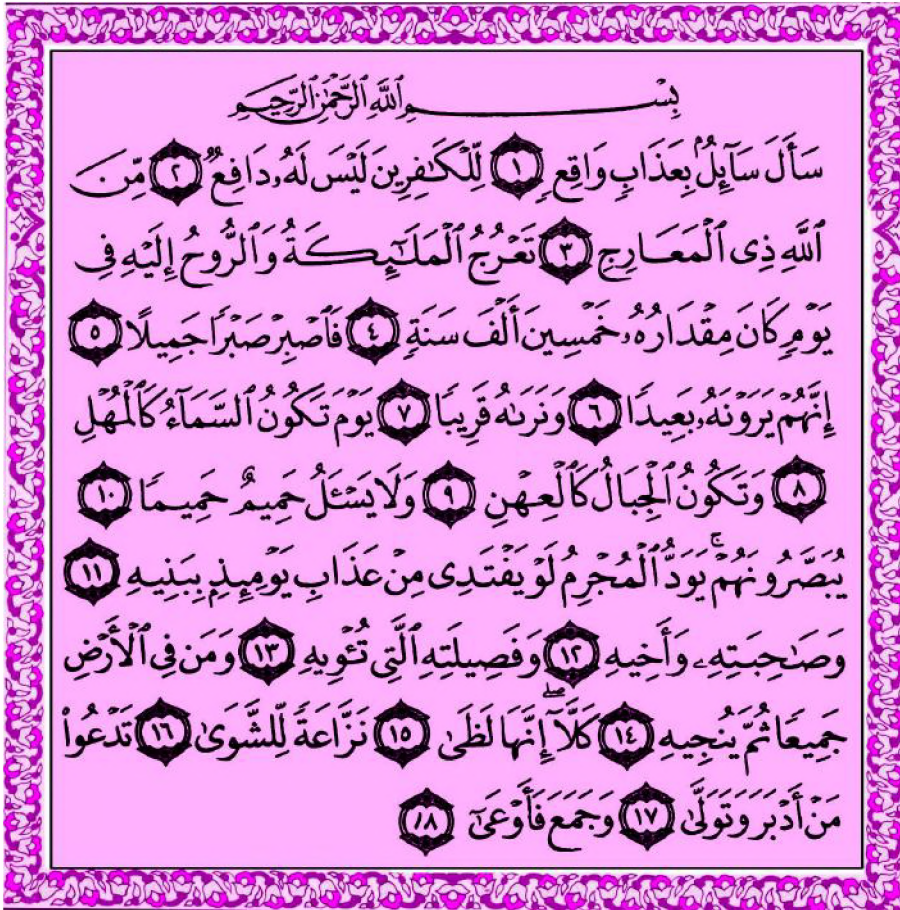 بِسْمِ ٱللَّهِ ٱلرَّحْمَٰنِ ٱلرَّحِيمِ
سَأَلَ سَآئِلٌۢ بِعَذَابٍ وَاقِعٍ ١ لِّلْكَٰفِرِينَ لَيْسَ لَهُۥ دَافِعٌ ٢ مِّنَ
ٱللَّهِ ذِى ٱلْمَعَارِجِ ٣ تَعْرُجُ ٱلْمَلَٰٓئِكَةُ وَٱلرُّوحُ إِلَيْهِ فِى
يَوْمٍ كَانَ مِقْدَارُهُۥ خَمْسِينَ أَلْفَ سَنَةٍ ٤ فَٱصْبِرْ صَبْرًا جَمِيلًا ٥
إِنَّهُمْ يَرَوْنَهُۥ بَعِيدًا ٦ وَنَرَىٰهُ قَرِيبًا ٧ يَوْمَ تَكُونُ ٱلسَّمَآءُ كَٱلْمُهْلِ
٨ وَتَكُونُ ٱلْجِبَالُ كَٱلْعِهْنِ ٩ وَلَا يَسْـَٔلُ حَمِيمٌ حَمِيمًا ١٠
يُبَصَّرُونَهُمْ ۚ يَوَدُّ ٱلْمُجْرِمُ لَوْ يَفْتَدِى مِنْ عَذَابِ يَوْمِئِذٍۭ بِبَنِيهِ ١١
وَصَٰحِبَتِهِۦ وَأَخِيهِ ١٢ وَفَصِيلَتِهِ ٱلَّتِى تُـْٔوِيهِ ١٣ وَمَن فِى ٱلْأَرْضِ
جَمِيعًا ثُمَّ يُنجِيهِ ١٤ كَلَّآ ۖ إِنَّهَا لَظَىٰ ١٥ نَزَّاعَةً لِّلشَّوَىٰ ١٦ تَدْعُوا۟
مَنْ أَدْبَرَ وَتَوَلَّىٰ ١٧ وَجَمَعَ فَأَوْعَىٰٓ ١٨